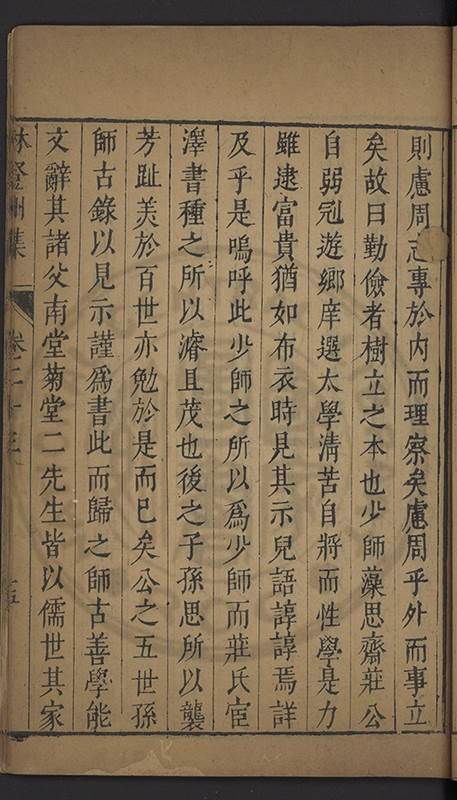 則慮周志專於內而理察矣慮周乎外而事立
矣故曰勤儉者樹立之本也少師藻思齋莊公
自弱冠遊鄉庠選太學清苦自將而性學是力
雖逮富貴猶如布衣時見其示兒語諄諄焉詳
及乎是嗚呼此少師之所以爲少師而莊氏宦
澤書種之所以濬且茂也後之子孫思所以襲
芳趾美於百世亦勉於是而已矣公之五世孫
師古錄以見示謹爲書此而歸之師古善學能
文辭其諸父南堂菊堂二先生皆以儒世其家
林登州集 卷二十三 十五